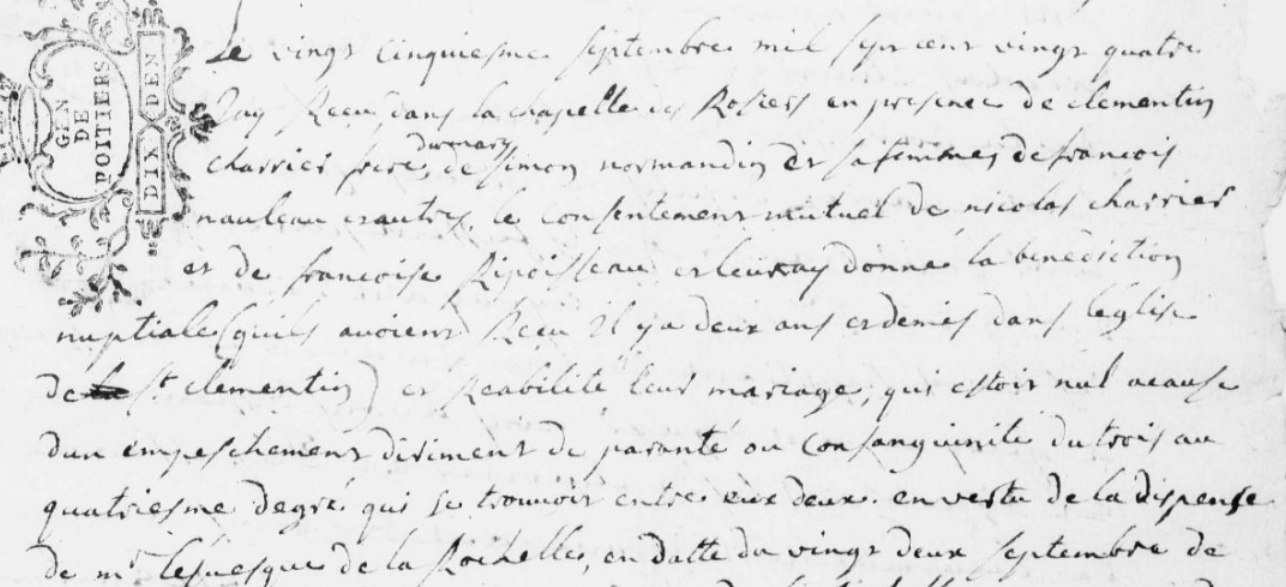 GEN
DE
POITIERS
DIX DEN
Le vingt cinquiesme septembre mil sept cent vingt quatre
Jay Receu dans la chapelle des Rosiers en presence de clementin
charrier frere, du mary de simon normandin et sa femme, de francois
nauleau et autres, le consentement mutuel de nicolas charrier
et de francoise Ripoisseau et leur ay donné la benediction
nuptiale (quils avoient Receu il y a deux ans et demis dans leglise
de st clementin) et Reabilité leur mariage, qui estoit nul acause
dun empeschement diriment de paranté ou consanguinité du trois au
quatriesme degré qui se trouvoit entre eux deux. en vertu de la dispense
de mr lesvesque de la Rochelle, en datte du vingt deux septembre de